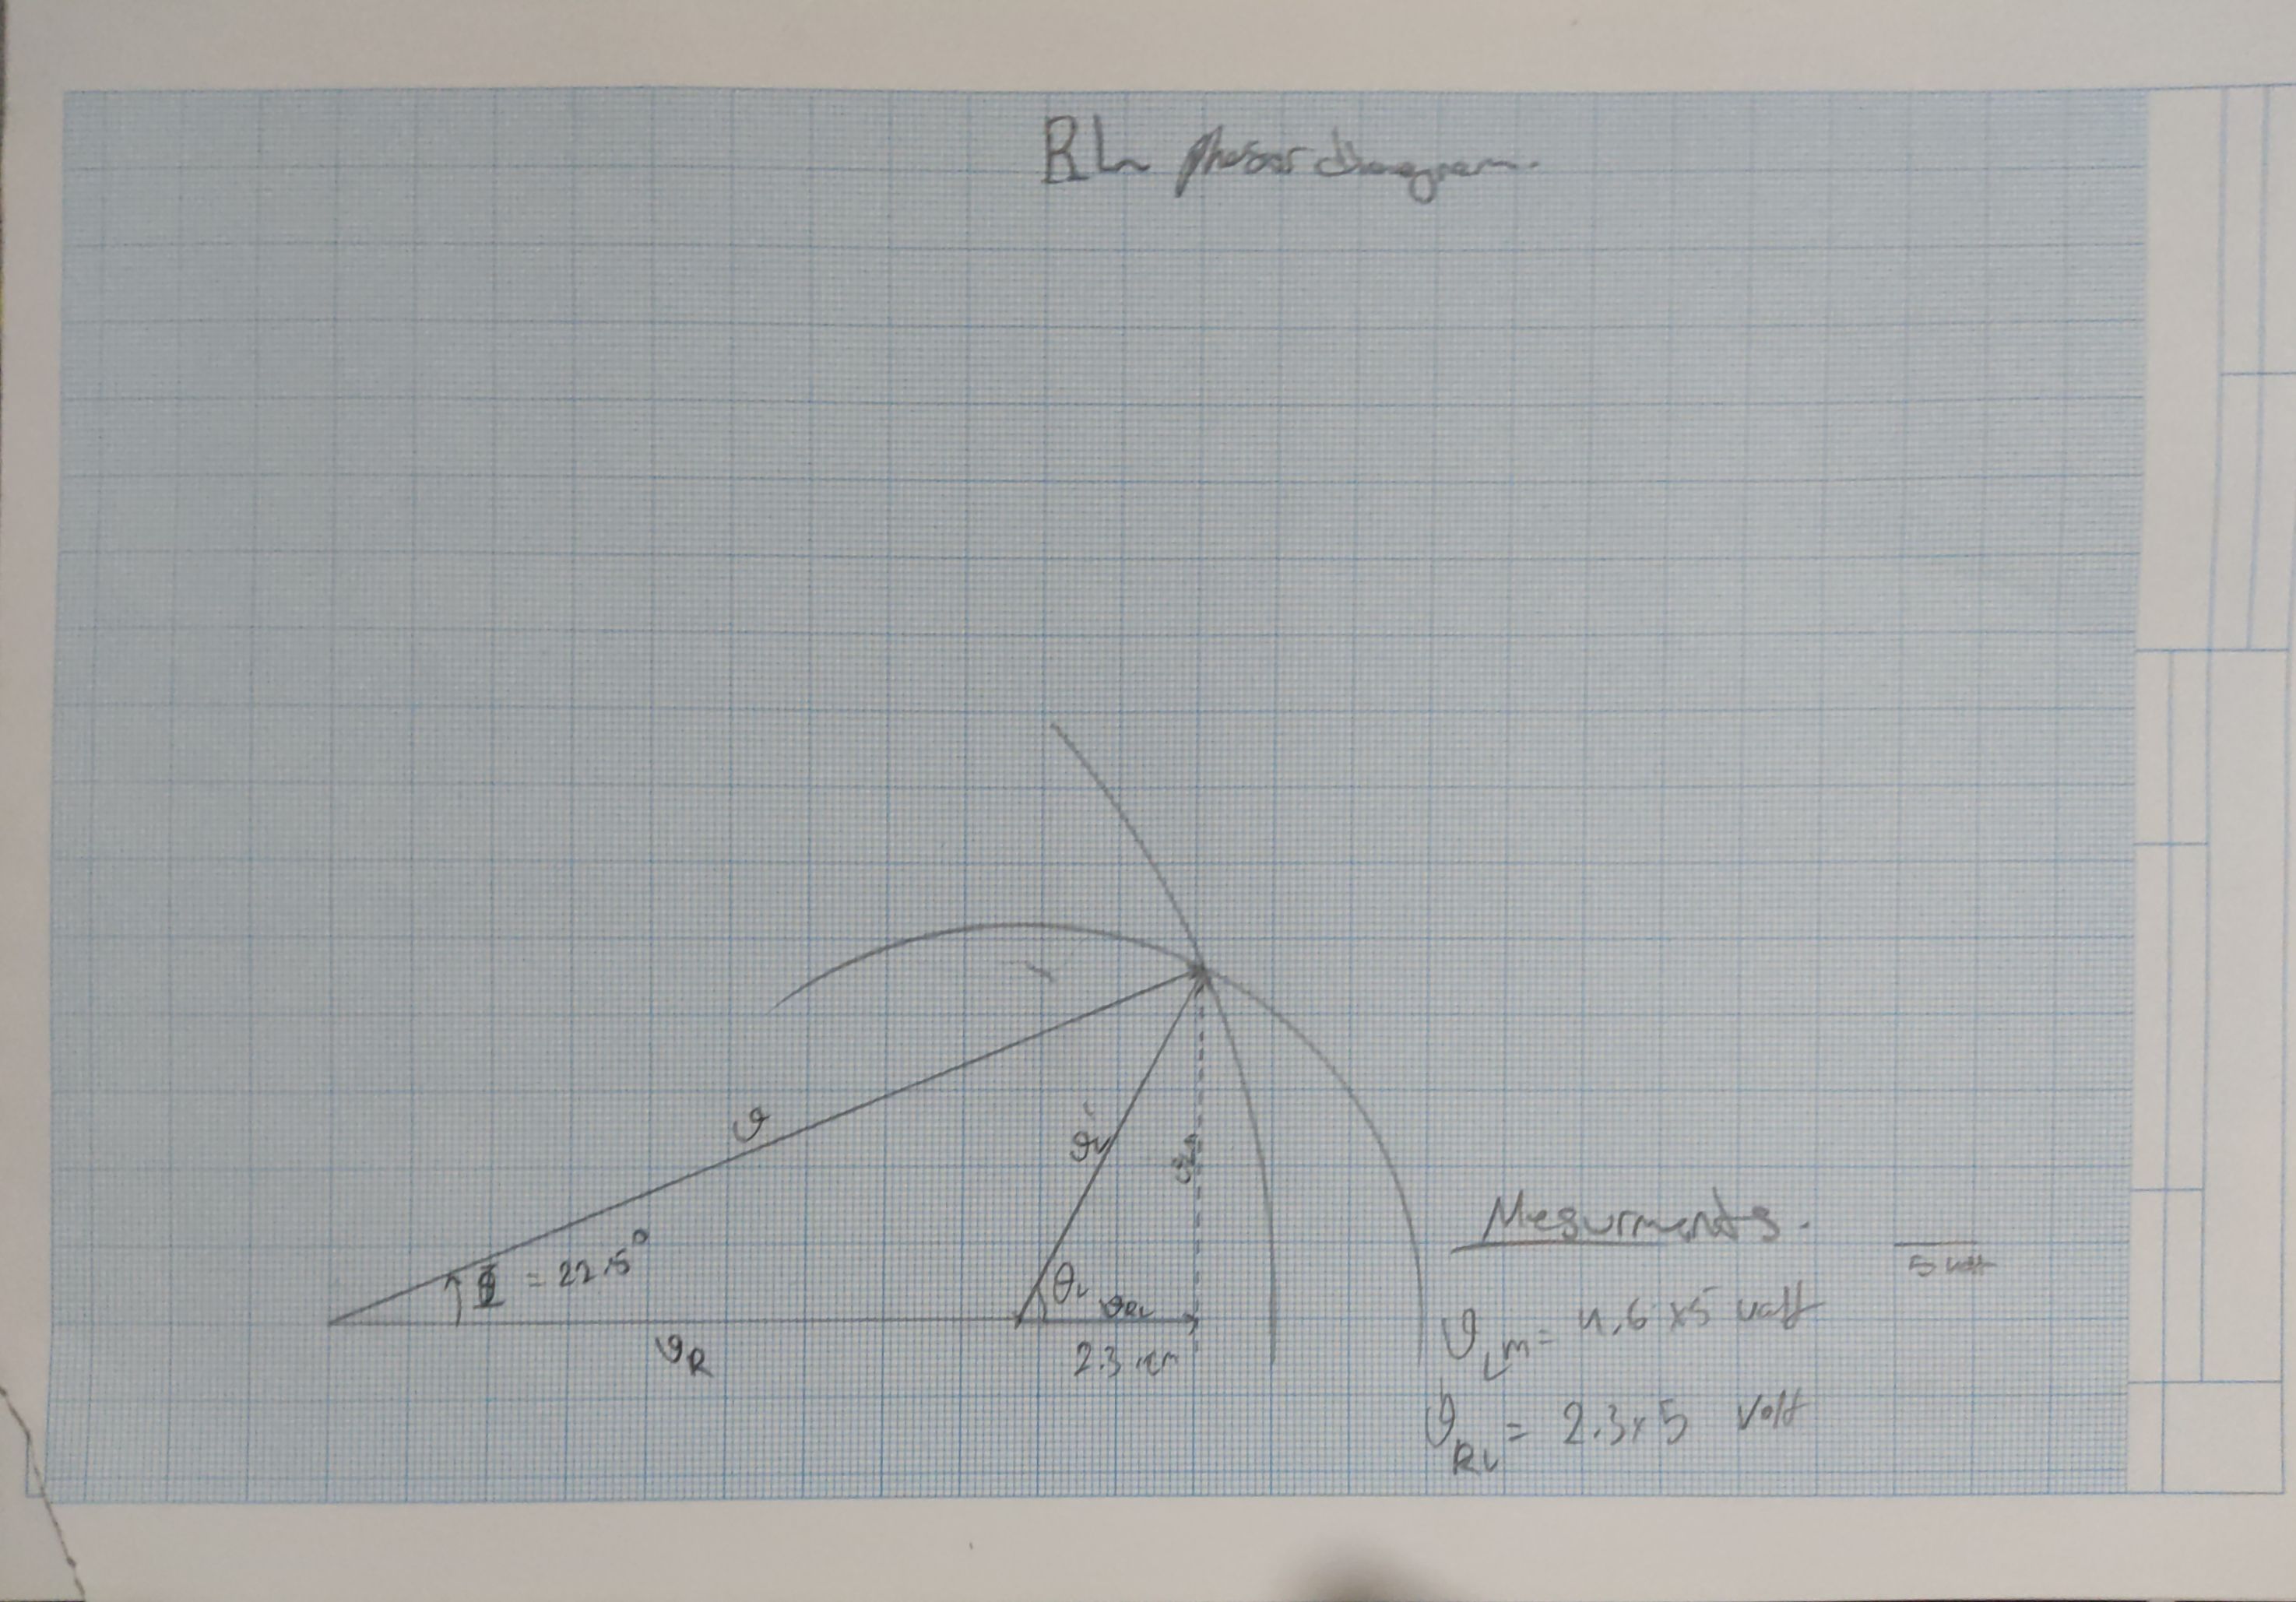 RL phasor diagram.
ϑ
ϑL'
Φ = 22.5°
θL
ϑRL
ϑR
2.3 cm
Mesurments.
5 volt
ϑLm = 4.6 x5 volt
ϑRL = 2.3x5 volt